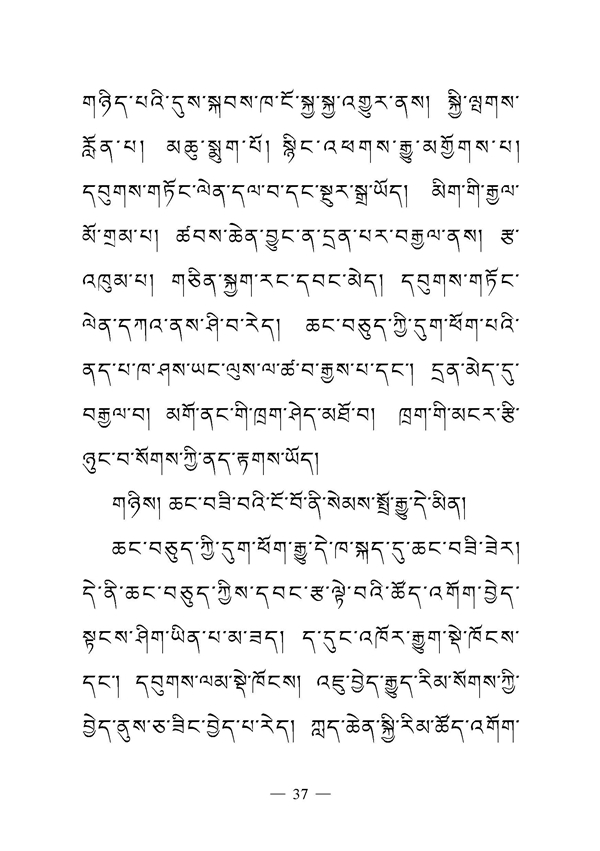 གཉིད་པའི་དུས་སྐབས་ཁ་ངོ་སྐྱ་སྐྱ་འགྱུར་ནས། སྐྱི་ལྤགས་
རློན་པ། མཆུ་སྨུག་པོ། སྙིང་འཕགས་རྒྱུ་མགྱོགས་པ།
དབུགས་གཏོང་ལེན་དལ་བ་དང་སྔུར་སྒྲ་ཡོད། མིག་གི་རྒྱལ་
མོ་གྲམ་པ། ཚབས་ཆེན་བྱུང་ན་དྲན་པར་བརྒྱལ་ནས། རྩ་
འཁུམ་པ། གཅིན་སྐྱག་རང་དབང་མེད། དབུགས་གཏོང་
ལེན་དཀའ་ནས་ཤི་བ་རེད། ཆང་བཅུད་ཀྱི་དུག་ཕོག་པའི་
ནད་པ་ཁ་ཤས་ཡང་ལུས་ལ་ཚ་བ་རྒྱས་པ་དང་། དྲན་མེད་དུ་
བརྒྱལ་བ། མགོ་ནང་གི་ཁྲག་ཤེད་མཐོ་བ། ཁྲག་གི་མངར་རྩི་
ཉུང་བ་སོགས་ཀྱི་ནད་རྟགས་ཡོད།
གཉིས། ཆང་བཟི་བའི་ངོ་བོ་ནི་སེམས་སྤྲོ་རྒྱུ་དེ་མིན།
ཆང་བཅུད་ཀྱི་དུག་ཕོག་རྒྱུ་དེ་ཁ་སྐད་དུ་ཆང་བཟི་ཟེར།
དེ་ནི་ཆང་བཅུད་ཀྱིས་དབང་རྩ་ལྟེ་བའི་ཚོད་འགོག་བྱེད་
སྟངས་ཤིག་ཡིན་པ་མ་ཟད། ད་དུང་འཁོར་རྒྱུག་སྡེ་ཁོངས་
དང་། དབུགས་ལམ་སྡེ་ཁོངས། འཇུ་བྱེད་རྒྱུད་རིམ་སོགས་ཀྱི་
བྱེད་ནུས་ཅ་ཟིང་བྱེད་པ་རེད། ཀླད་ཆེན་སྐྱི་རིམ་ཚོད་འགོག་
— 37 —